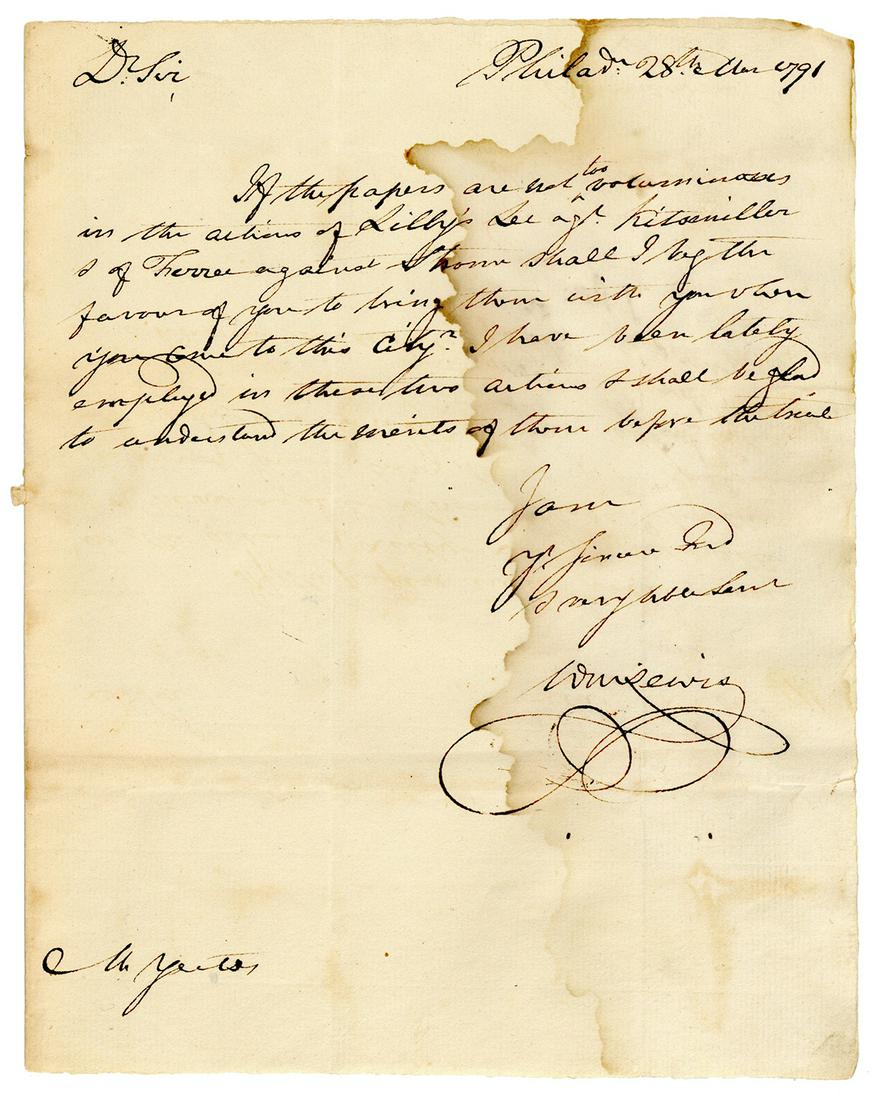 Dr. Sir Philada. 28th. Mar 1791
If the papers are not too voluminous
in the actions of Lilly's Lee agt. Kitsmiller
& of Ferree against shall I beg the
favour of you to bring them with you when
you come to this City. I have been lately
employed in these two actions & shall be glad
to understand the merits of them before the trial
I am
Yr. sincere Frd
& very Hble Servt
Wm Lewis
Mr Yeates